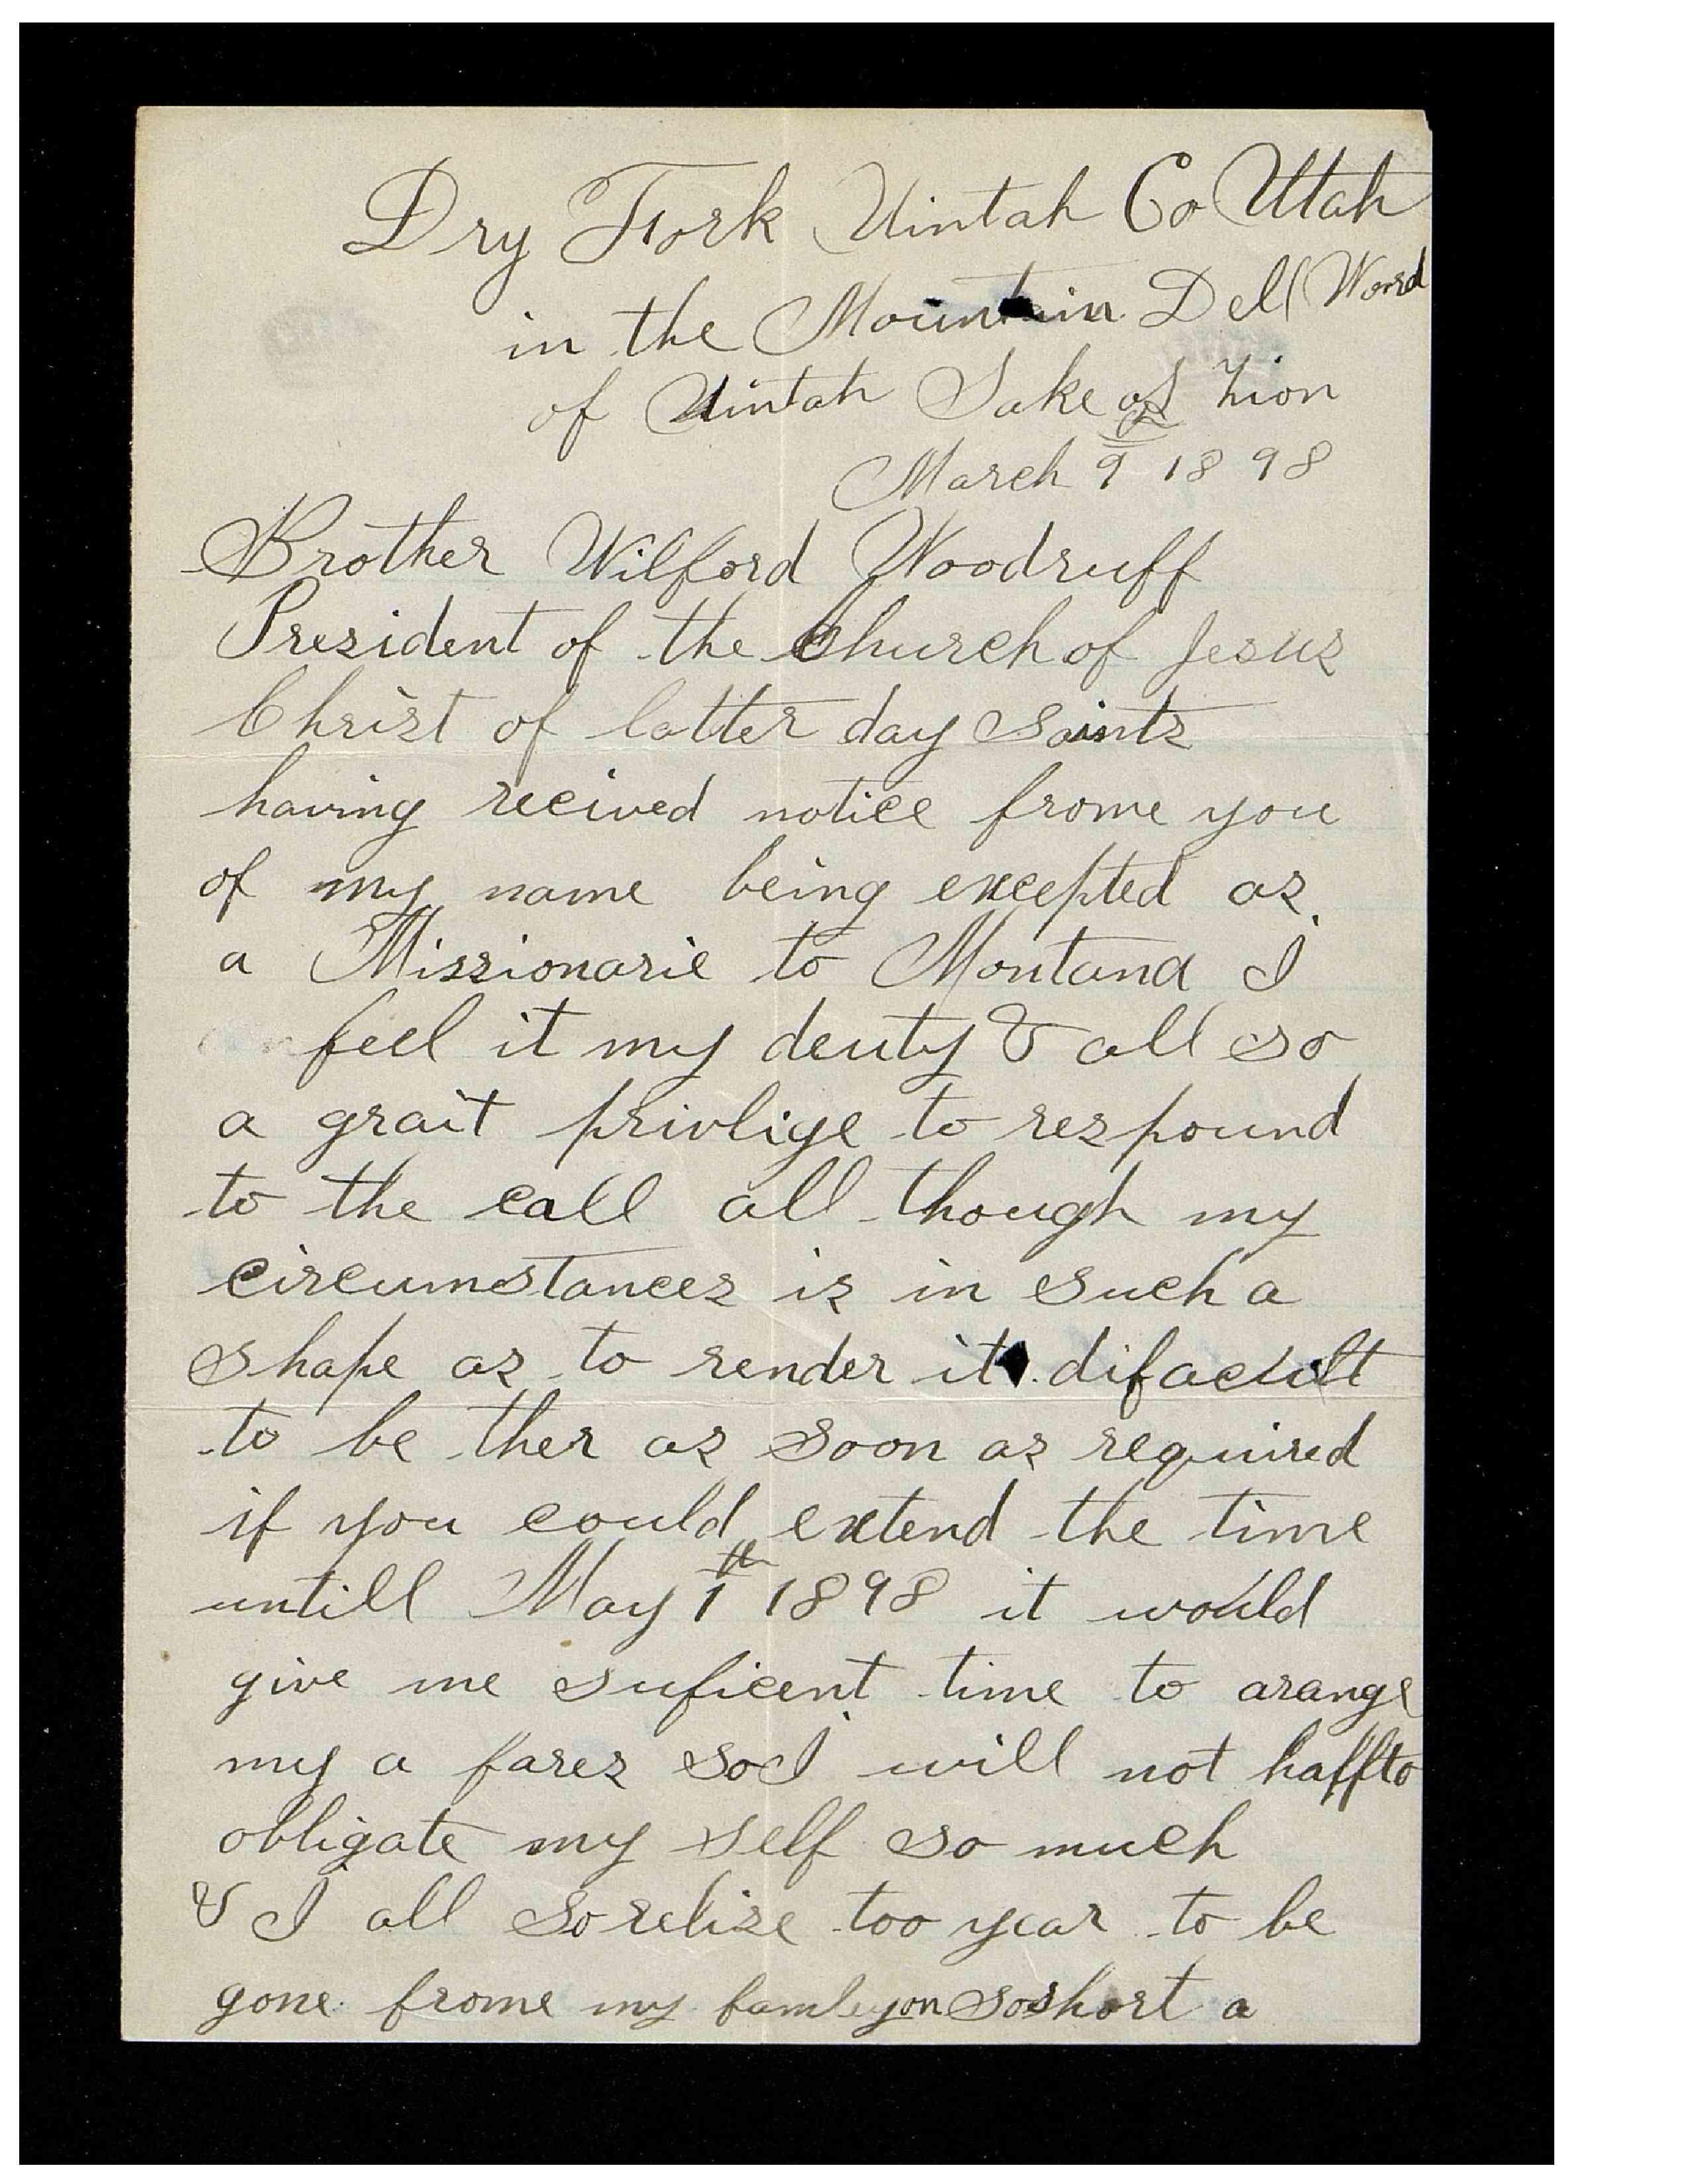 Dry Fork Uintah Co Utah
in the Mountain Dell Ward
of Uintah Sake of Zion
March 9th 1898
Brother Wilford Woodruff
President of the Church of Jesus
Christ of latter day saints
having recived notice frome you
of my name being excepted as
a Missionarie to Montana I
feel it my deuty & all so
a grait privlige to respound
to the call all though my
circumstances is in such a
shape as to render it difacult
to be ther as soon as required
if you could extend the time
untill May 1th 1898 it would
give me suficent time to arange
my a fares so I will not haffto
obligate my self so much
& I all so relize too year to be
gone frome my famley on so short a